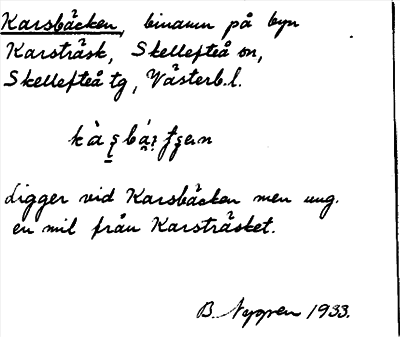 Karsbäcken, binamn på byn
Karsträsk, Skellefteå sn,
Skellefteå tg, Västerb.l.
Ligger vid Karsbäcken men ung.
en mil från Karsträsket.
B. Nygren 1933.